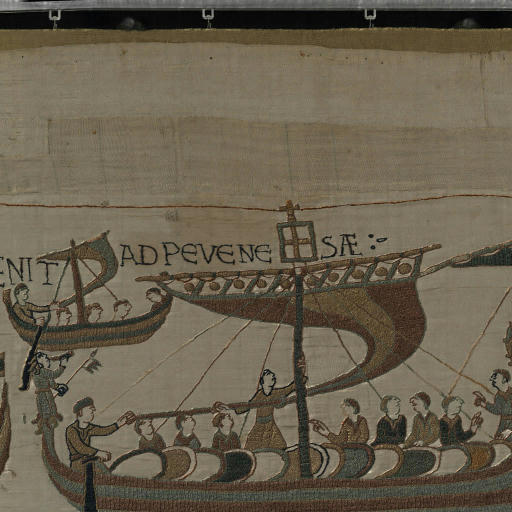 ENIT AD PEVENESÆ :-